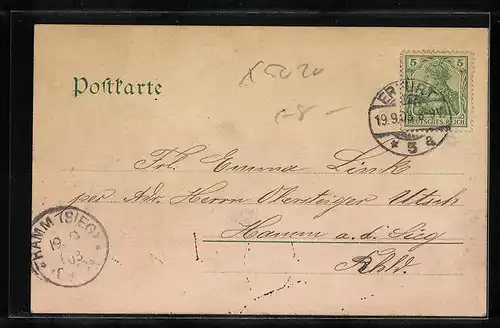 Postkarte
5 5
DEUTSCHES REICH
ERFURT
19.9.03. 8-9V
* 5 a
Frl. Emma Link
per Adr. Herrn Obersteiger Utsch
Hamm a. d. Sieg
Rhld.
HAMM (SIEG)
19 9
03